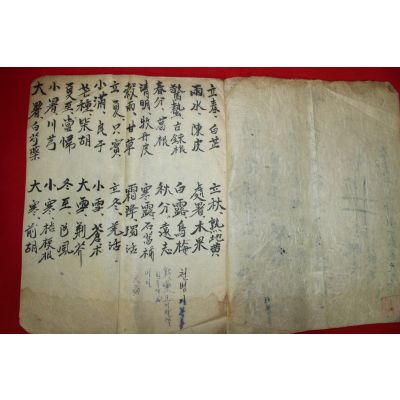 立春、白芷
雨水、陳皮
驚蟄、古錄根
春分、葛根
清明、牧丹皮
穀雨、甘草
立夏、只實
小滿、良干
芒種、柴胡
夏至、當㱕
小暑、川芎
大暑、白芍藥
立秋、熟地黃
處暑、木果
白露、烏梅
秋分、遠志
寒露、石菖蒲
霜降、獨活
立冬、羌活
小雪、蒼朮
大雪、荊芥
冬至、防風
小寒、桔梗根
大寒、前胡